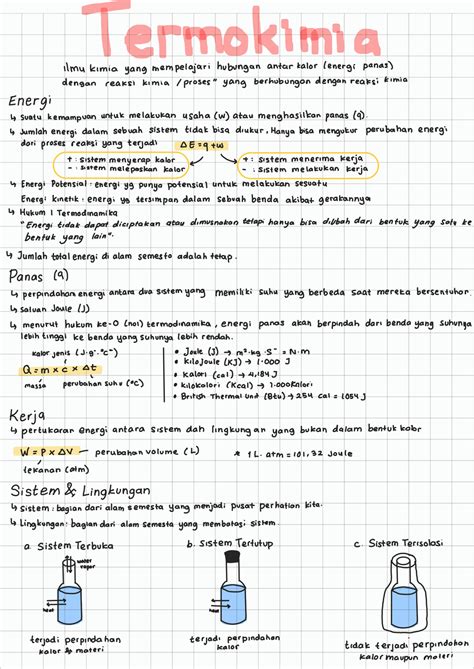 Termokimia
ilmu kimia yang mempelajari hubungan antar kalor (energi panas)
dengan reaksi kimia /proses" yang berhubungan dengan reaksi kimia
Energi
↳ Suatu kemampuan untuk melakukan usaha (w) atau menghasilkan panas (q).
↳ Jumlah energi dalam sebuah sistem tidak bisa diukur, Hanya bisa mengukur perubahan energi
dari proses reaksi yang terjadi ΔE = q + w
+ : sistem menyerap kalor
- : sistem melepaskan kalor
+ : sistem menerima kerja
- : sistem melakukan kerja
↳ Energi Potensial : energi yg punya potensial untuk melakukan sesuatu
Energi kinetik : energi yg tersimpan dalam sebuah benda akibat gerakannya
↳ Hukum 1 Termodinamika
"Energi tidak dapat diciptakan atau dimusnakan tetapi hanya bisa dibbah dari bentuk yang satu ke
bentuk yang lain".
↳ Jumlah total energi di alam semesto adalah tetap.
Panas (q)
↳ perpindahan energi antara dua sistem yang memiliki suhu yang berbeda saat mereka bersentuhan.
↳ Satuan Joule (J)
↳ menurut hukum ke-0 (nol) termodynamika, energi panas akan berpindah dari benda yang suhunya
lebih tinggi ke benda yang suhunya lebih rendah.
kalor jenis (J·g⁻·°C⁻)
Q = m x c x Δt
massa perubahan suhu (°C)
• Joule (J) → m²·kg·S⁻ = N·m
• kilojoule (KJ) → 1.000 J
• kalori (cal) → 4,184 J
• kilokalori (Kcal) → 1.000kalori
• British Thermal Unit (Btu) → 254 cal = 1054 J
Kerja
↳ pertukaran energi antara sistem dah lingkungan yang bukan dalam bentuk kalor
W = P x ΔV — perubahan volume (L)
tekanan (atm)
* 1 L. atm = 101,32 Joule
Sistem & Lingkungan
↳ Sistem : bagian dari alam semesta yang menjadi pusat perhatian kita.
↳ Lingkungan : bagian dari alam semesta yang membatasi sistem.
a. Sistem Terbuka
b. Sistem Tertutup
c. Sistem Terisolasi
water
vapor
heat
heat
terjadi perpindahan
kalor & materi
terjadi perpindahan
kalor
tidak terjadi perpindahan
kalor maupun materi